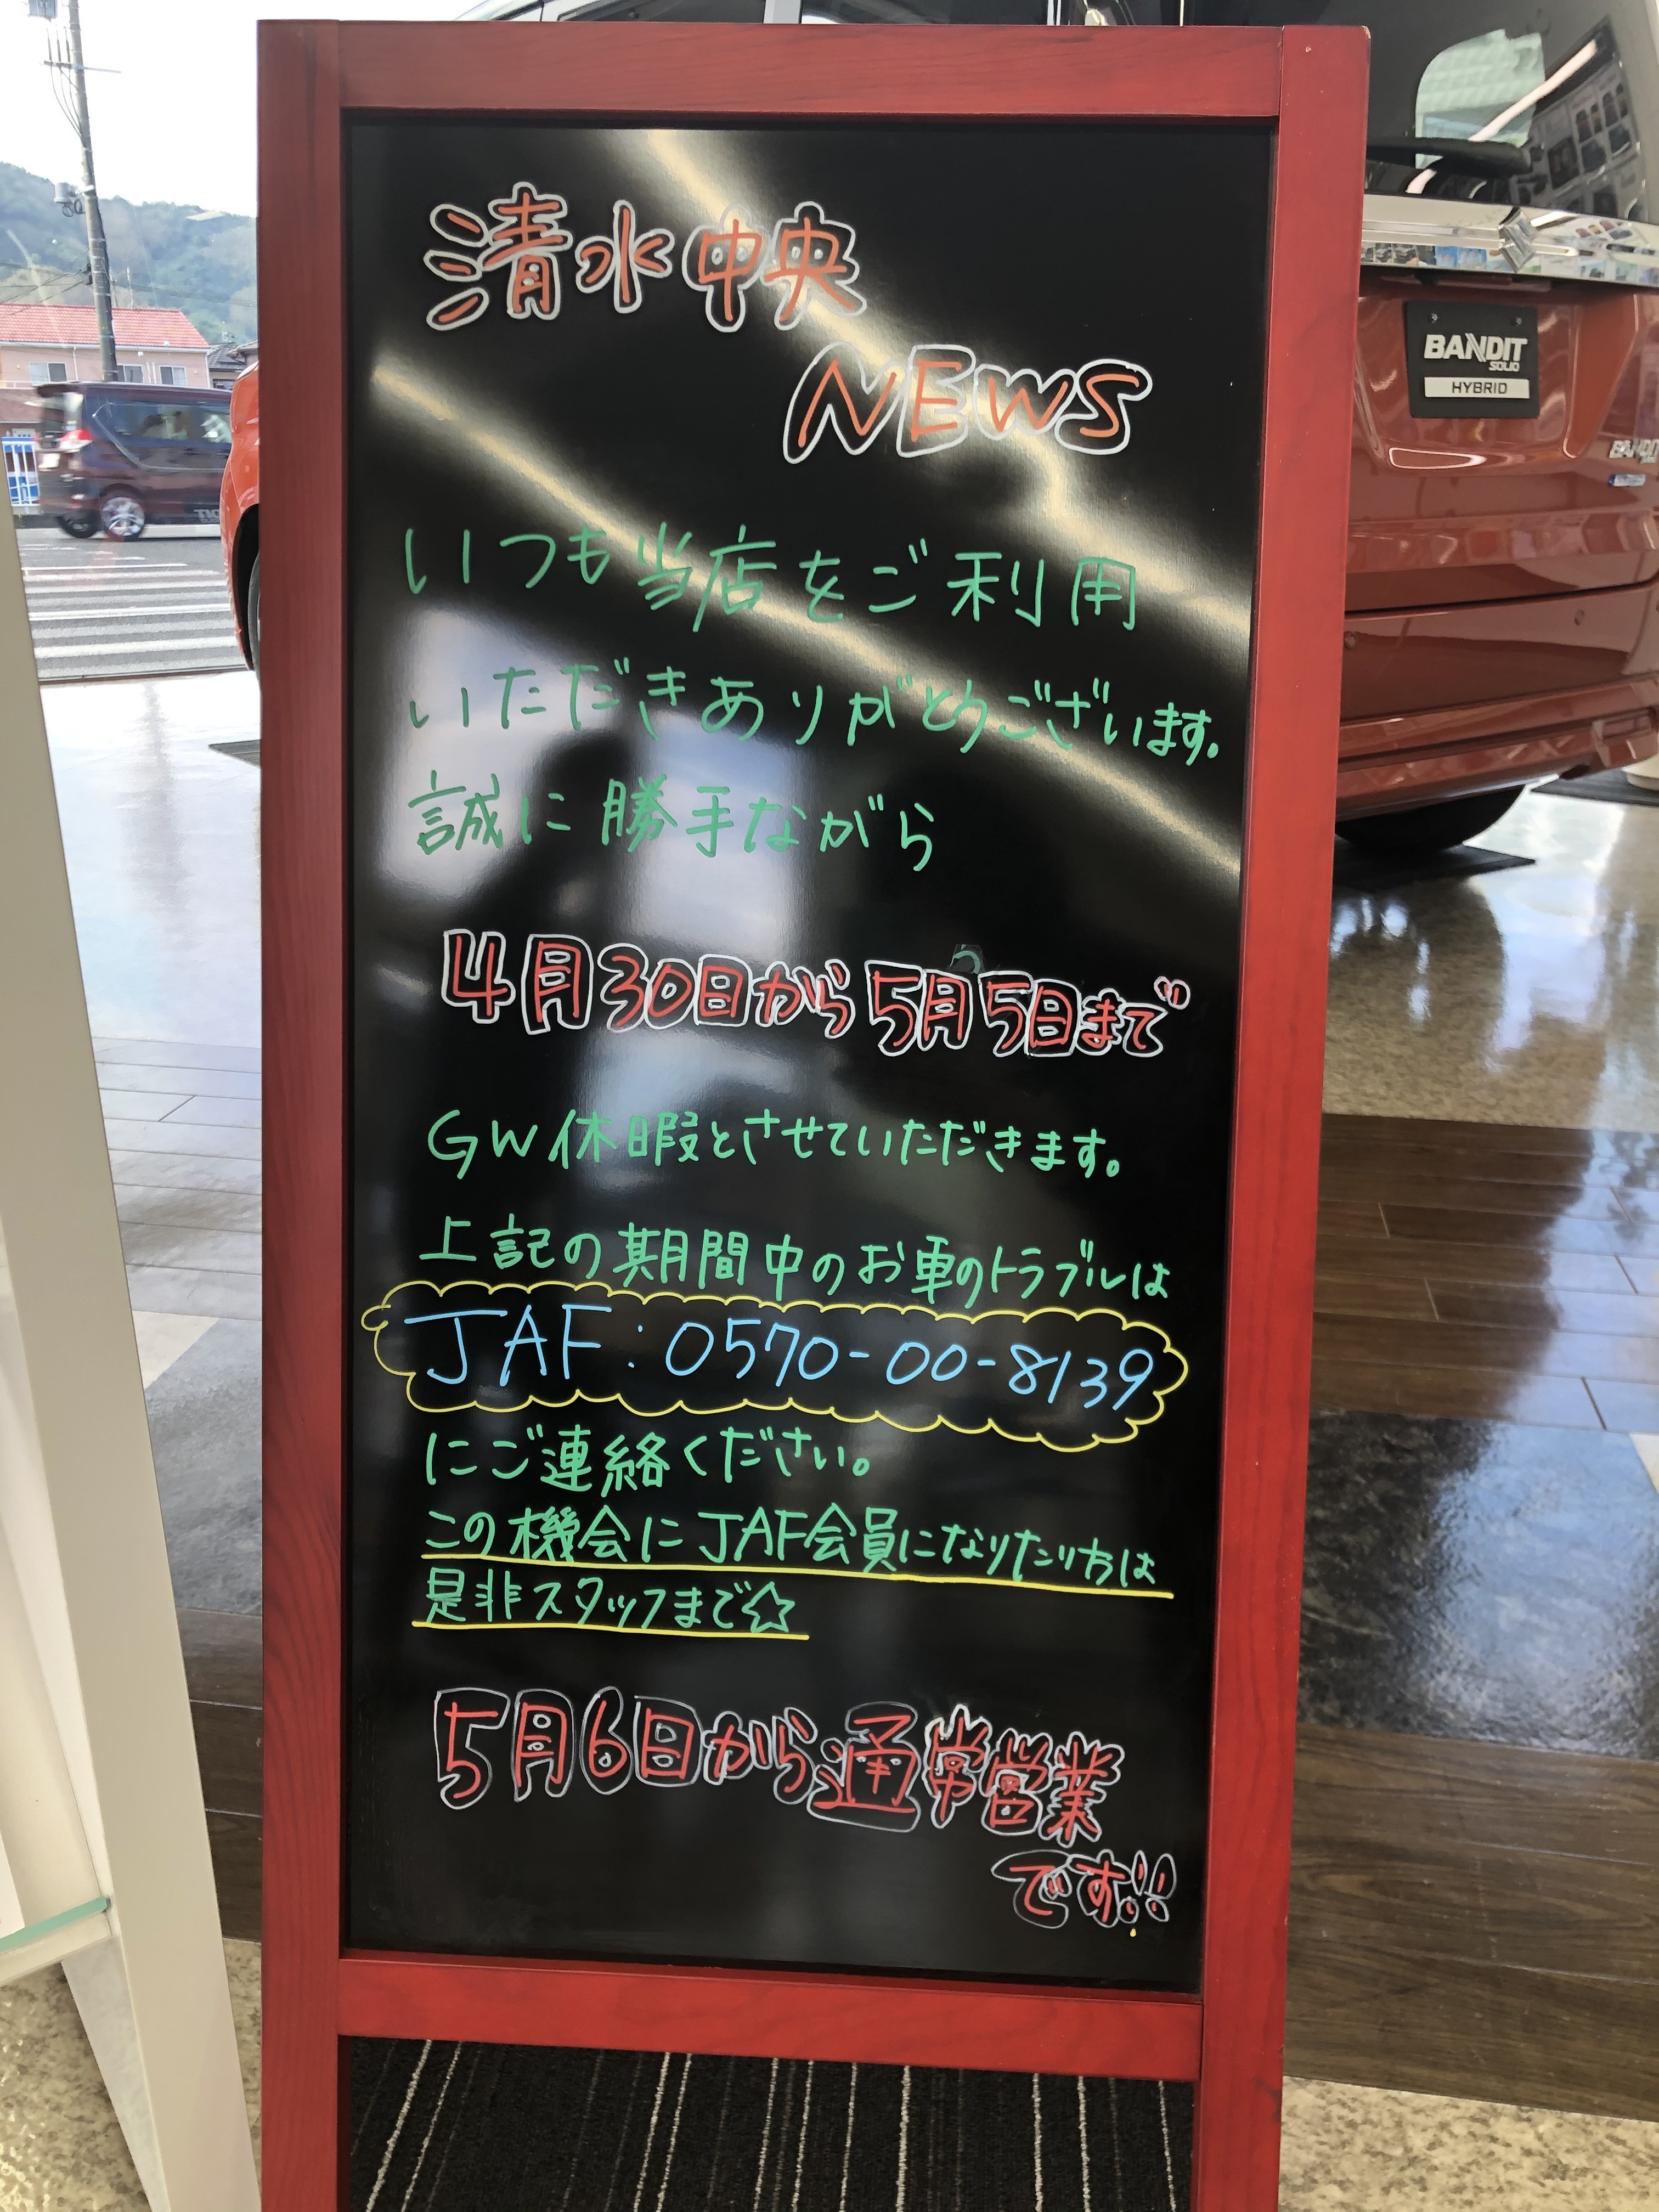 清水中央
NEWS
いつも当店をご利用
いただきありがとうございます。
誠に勝手ながら
4月30日から5月5日まで
GW休暇とさせていただきます。
上記の期間中のお車のトラブルは
JAF:0570-00-8139
にご連絡ください。
この機会にJAF会員になりたい方は
是非スタッフまで☆
5月6日から通常営業
です!!
BANDIT
SOLIO
HYBRID
BANDIT